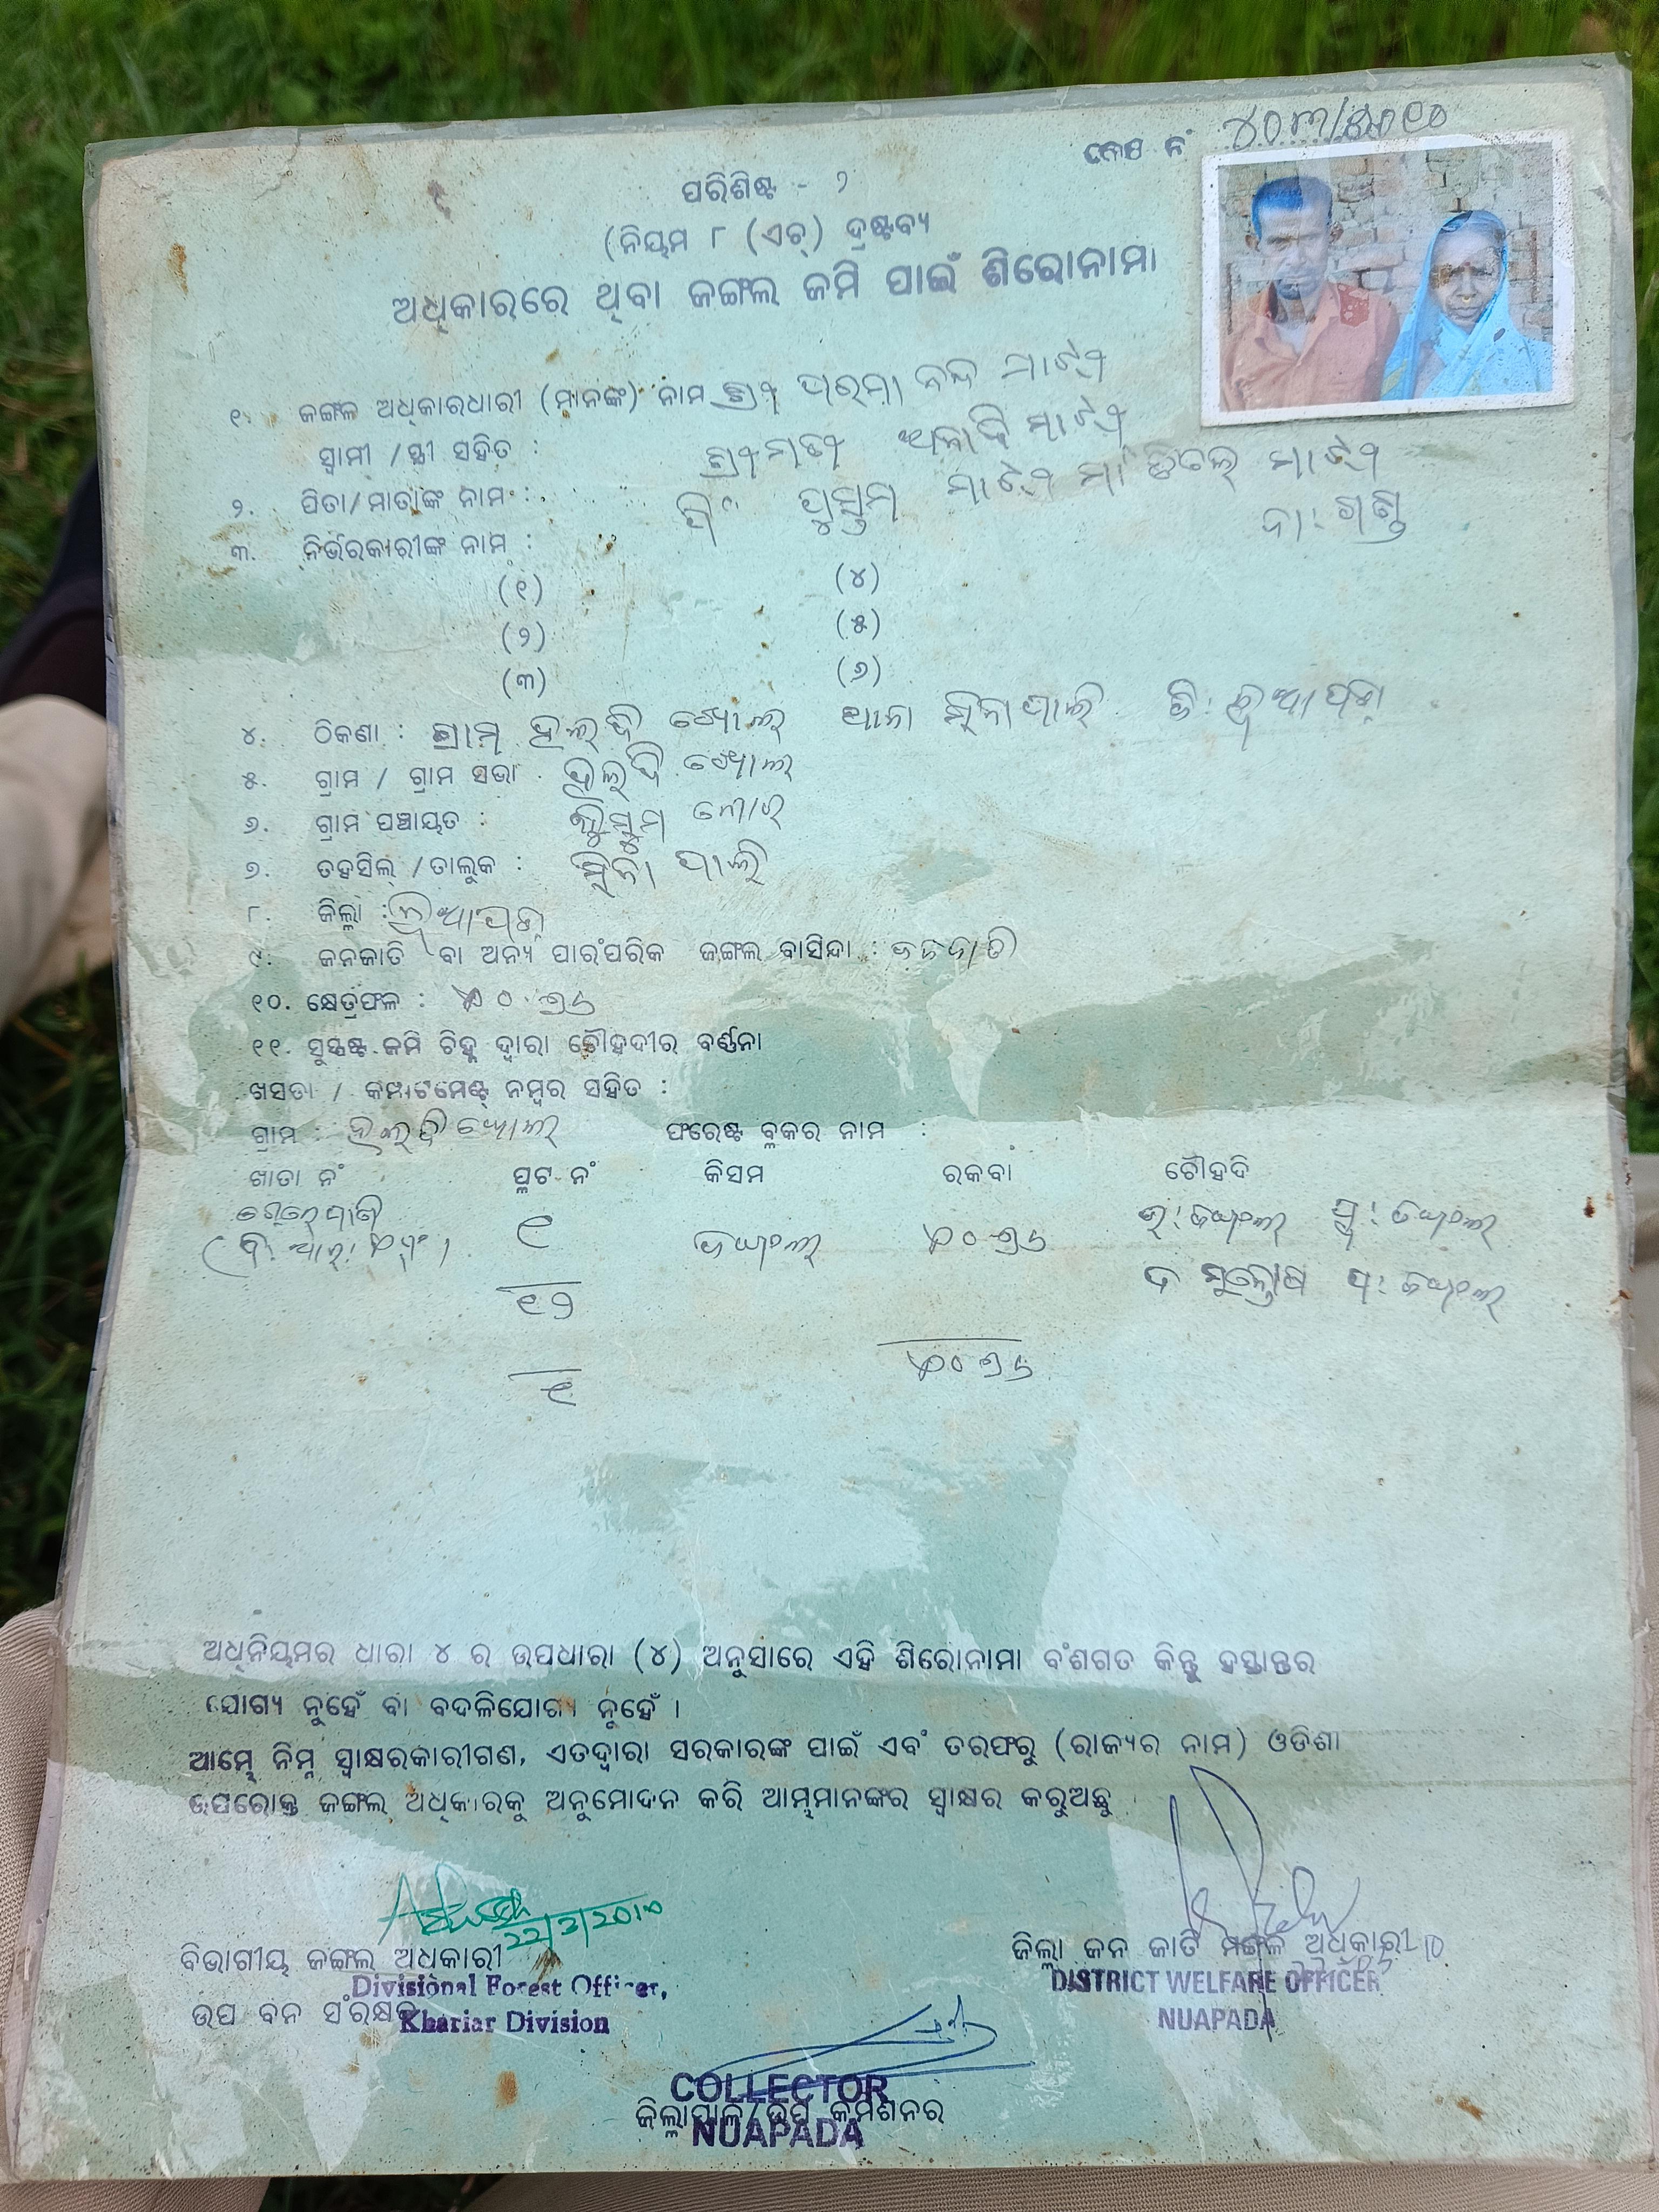 କେଶ ନଂ ୪୦୩/୨୦୧୦
ପରିଶିଷ୍ଟ - ୨
(ନିୟମ ୮ (ଏଚ୍) ଦ୍ରଷ୍ଟବ୍ୟ
ଅଧିକାରରେ ଥିବା ଜଙ୍ଗଲ ଜମି ପାଇଁ ଶିରୋନାମା
୧. ଜଙ୍ଗଲ ଅଧିକାରଧାରୀ (ମାନଙ୍କ) ନାମ ଶ୍ରୀ ପରମାନନ୍ଦ ମାଝୀ
ସ୍ୱାମୀ / ସ୍ତ୍ରୀ ସହିତ : ଶ୍ରୀମତୀ ମାଝୀ
୨. ପିତା/ମାତାଙ୍କ ନାମ : ମାଝୀ ମା ମାଝୀ
୩. ନିର୍ଭରକାରୀଙ୍କ ନାମ : ଜା: ଗଣ୍ଡ
(୧) (୪)
(୨) (୫)
(୩) (୬)
୪. ଠିକଣା : ଗ୍ରାମ ହଲ୍ଦି ଖୋଲ୍ ଥାନା ସିନାପାଲି ଜି: ନୂଆପଡ଼ା
୫. ଗ୍ରାମ / ଗ୍ରାମ ସଭା : ହଲ୍ଦି ଖୋଲ୍
୬. ଗ୍ରାମ ପଞ୍ଚାୟତ :
୭. ତହସିଲ୍ / ତାଲୁକ : ସିନାପାଲି
୮. ଜିଲ୍ଲା : ନୂଆପଡ଼ା
୯. ଜନଜାତି ବା ଅନ୍ୟ ପାରଂପରିକ ଜଙ୍ଗଲ ବାସିନ୍ଦା : ଜନଜାତି
୧୦. କ୍ଷେତ୍ରଫଳ :
୧୧. ସୁସ୍ପଷ୍ଟ ଜମି ଚିହ୍ନ ଦ୍ୱାରା ଚୌହଦୀର ବର୍ଣ୍ଣନା
ଖସଡା / କମ୍ପାଟମେଣ୍ଟ୍ ନମ୍ବର ସହିତ :
ଗ୍ରାମ : ହଲ୍ଦିଖୋଲ୍ ଫରେଷ୍ଟ ବ୍ଲକର ନାମ :
ଖାତା ନଂ ପ୍ଲଟ ନଂ କିସମ ରକବା ଚୌହଦି
୧ ଜଙ୍ଗଲ୍ ଉ: ଜଙ୍ଗଲ୍ ପୂ: ଜଙ୍ଗଲ୍
୧୨ ଦ ପ: ଜଙ୍ଗଲ୍
୧
ଅଧିନିୟମର ଧାରା ୪ ର ଉପଧାରା (୪) ଅନୁସାରେ ଏହି ଶିରୋନାମା ବଂଶଗତ କିନ୍ତୁ ହସ୍ତାନ୍ତର
ଯୋଗ୍ୟ ନୁହେଁ ବା ବଦଳିଯୋଗ୍ୟ ନୁହେଁ ।
ଆମ୍ଭେ ନିମ୍ନ ସ୍ୱାକ୍ଷରକାରୀଗଣ, ଏତଦ୍ୱାରା ସରକାରଙ୍କ ପାଇଁ ଏବଂ ତରଫରୁ (ରାଜ୍ୟର ନାମ) ଓଡିଶା
ଉପରୋକ୍ତ ଜଙ୍ଗଲ ଅଧିକାରକୁ ଅନୁମୋଦନ କରି ଆମ୍ଭମାନଙ୍କର ସ୍ୱାକ୍ଷର କରୁଅଛୁ
22/2/2010
ବିଭାଗୀୟ ଜଙ୍ଗଲ ଅଧିକାରୀ ଜିଲ୍ଲା ଜନ ଜାତି ମଙ୍ଗଳ ଅଧିକାରୀ
Divisional Forest Officer, DISTRICT WELFARE OFFICER
ଉପ ବନ ସଂରକ୍ଷକ Khariar Division NUAPADA
COLLECTOR
ଜିଲ୍ଲାପାଳ/ଉପ କମିଶନର
NUAPADA